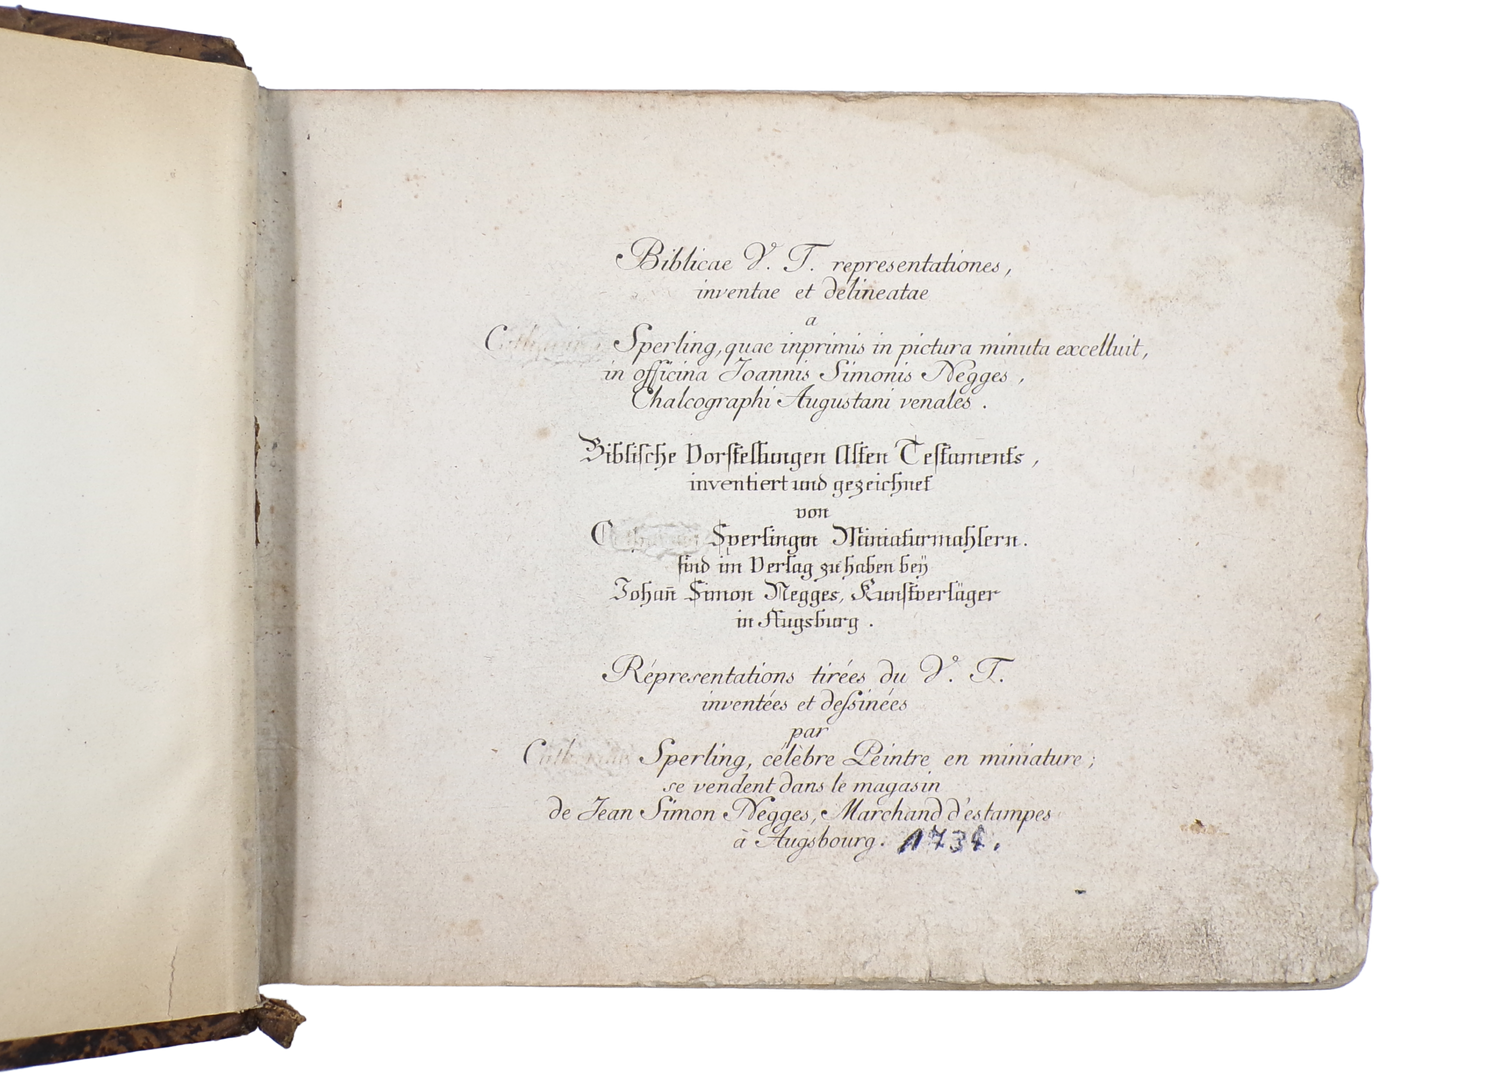 Biblicae V. T. representationes,
inventae et delineatae
a
Sperling, quae inprimis in pictura minuta excelluit,
in officina Joannis Simonis Negges,
Chalcographi Augustani venales.
Biblische Vorstellungen Alten Testaments,
inventiert und gezeichnet
von
Sperlingin Miniaturmahlern.
sind im Verlag zu haben beÿ
Johan̄ Simon Negges, Kunstverläger
in Augsburg.
Répresentations tirées du V. T.
inventées et deſsinées
par
Sperling, célèbre Peintre en miniature;
se vendent dans le magasin
de Jean Simon Negges, Marchand d'estampes
à Augsbourg. 1734.